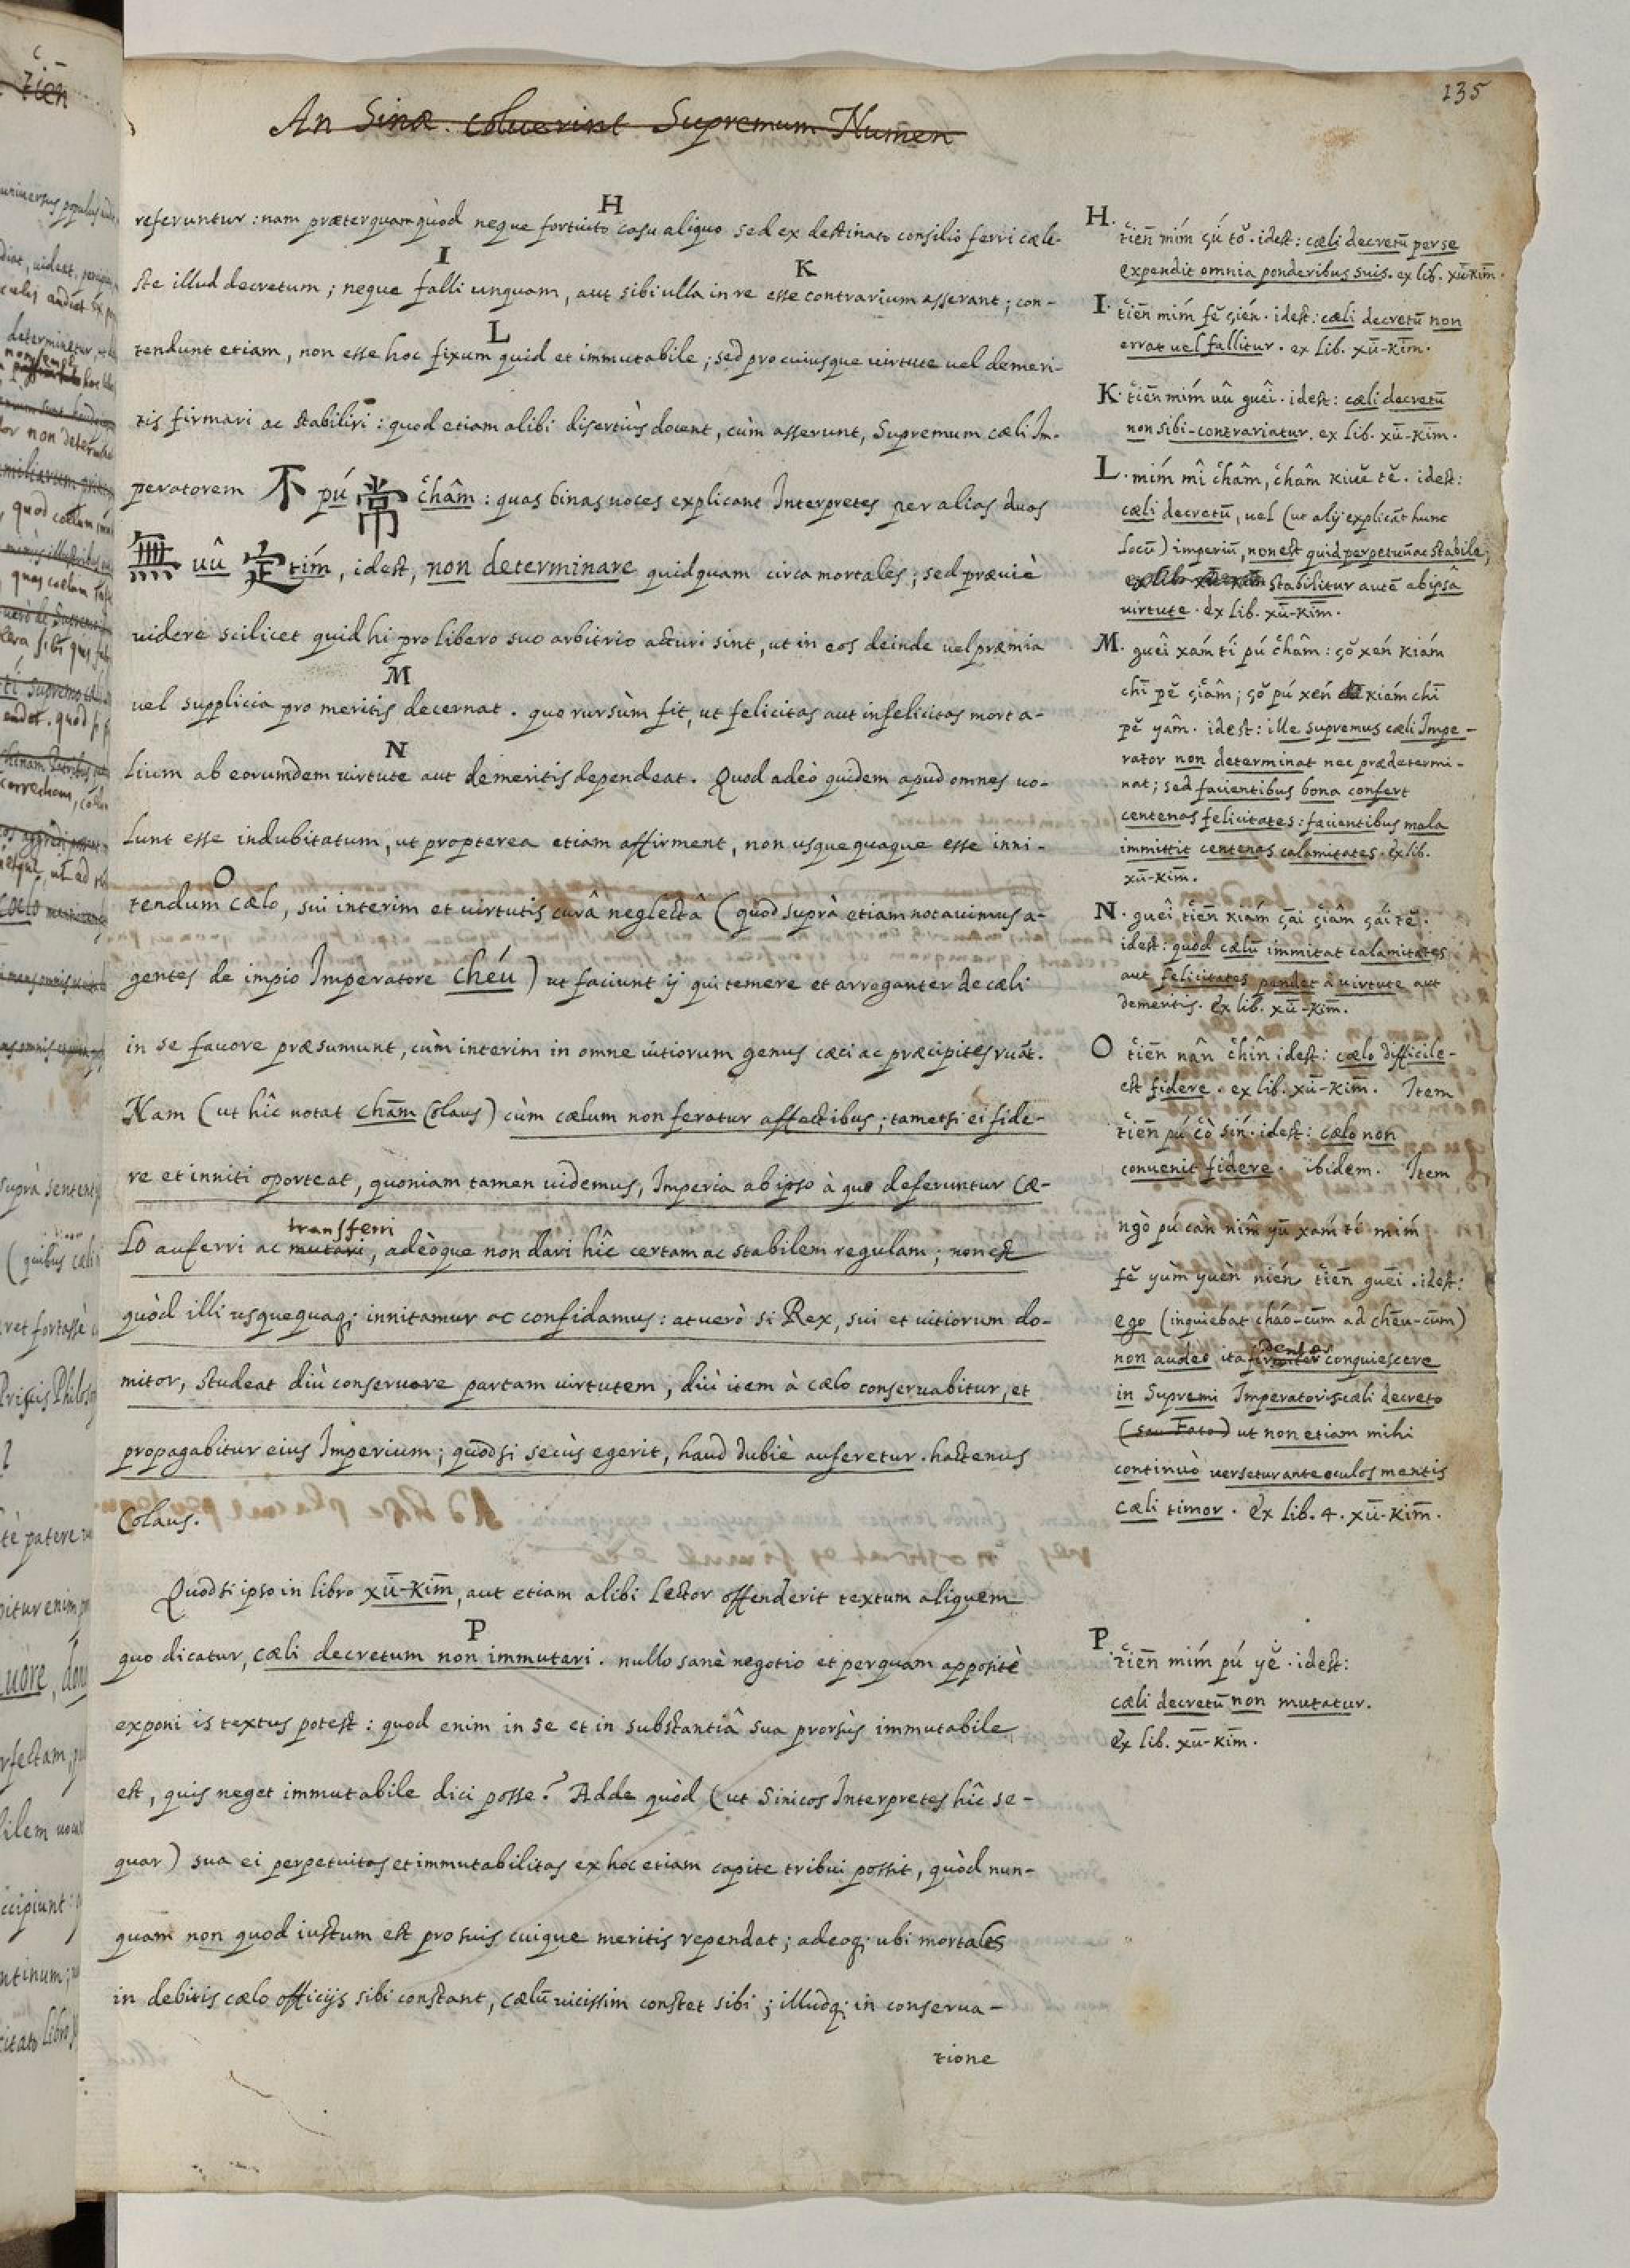 135
An Sinæ coluerint Supremum Numen
referuntur: nam præterquamquòd neque fortuito casu aliquo sed ex destinato consilio ferri cæle-
ste illud decretum; neque falli unquam, aut sibi ulla in re esse contrarium asserant; con-
tendunt etiam, non esse hoc fixum quid et immutabile; sed pro cuiusque virtute vel demeri-
tis firmari ac stabiliri: quod etiam alibi disertiùs docent, cùm asserunt, Supremum cæli Im-
peratorem 不 pú 常 c̓hâm: quas binas voces explicant Interpretes per alias duas
無 uû 定 tím, idest, non determinare quidquam circa mortales; sed præviè
videre scilicet quid hi pro libero suo arbitrio acturi sint, ut in eos deinde vel præmia
vel supplicia pro meritis decernat. quo rursùm fit, ut felicitas aut infelicitas morta-
lium ab eorumdem virtute aut demeritis dependeat. Quod adeò quidem apud omnes vo-
lunt esse indubitatum, ut propterea etiam affirment, non usquequaque esse inni-
tendum cælo, sui interim et virtutis curâ neglectâ (quod suprà etiam notavimus a-
gentes de impio Imperatore Chéu) ut faciunt ij qui temere et arroganter de cæli
in se favore præsumunt, cùm interim in omne vitiorum genus cæci ac præcipites ruāt.
Nam (ut hîc notat Chām Colaus) cùm cælum non feratur affectibus; tametsi ei fide-
re et inniti oporteat, quoniam tamen videmus, Imperia ab ipso à quo deferuntur cæ-
lo auferri ac mutari transferri, adeòque non dari hîc certam ac stabilem regulam; non est
quòd illi usquequaq; innitamur ac confidamus: at verò si Rex, sui et vitiorum do-
mitor, studeat diù conservare partam virtutem, diù item à cælo conservabitur, et
propagabitur eius Imperium; quòd si secùs egerit, haud dubiè auferetur. hactenus
Colaus.
Quod si ipso in libro xū-kīm, aut etiam alibi Lector offenderit textum aliquem
quo dicatur, cæli decretum non immutari. nullo sanè negotio et perquam appositè
exponi is textus potest: quod enim in se et in substantiâ sua prorsùs immutabile
est, quis neget immutabile dici posse? Adde quòd (ut Sinicos Interpretes hîc se-
quar) sua ei perpetuitas et immutabilitas ex hoc etiam capite tribui possit, quòd nun-
quam non quod iustum est pro suis cuique meritis rependat; adeoq; ubi mortales
in debitis cælo officijs sibi constant, cælū vicissim constet sibi; illudq; in conserva-
tione
H. tiēn mím çú tŏ. idest: cæli decretū per se
expendit omnia ponderibus suis. ex lib. xū-kīm.
I. tiēn mím fĕ çién. idest: cæli decretū non
errat vel fallitur. ex lib. xū-kīm.
K. tiēn mím uû guêi. idest: cæli decretū
non sibi-contrariatur. ex lib. xū-kīm.
L. mím mî châm, châm kiuĕ tĕ. idest:
cæli decretū, vel (ut alij explicāt hunc
locū) imperiū, non est quid perpetuū ac stabile;
ex lib xū-kīm stabilitur autē ab ipsâ
virtute. ex lib. xū-kīm.
M. guêi xám tí pú châm: çŏ xén kiám
chī pĕ çiâm; çŏ pú xén kiám chī
pĕ yâm. idest: ille supremus cæli Impe-
rator non determinat nec prædetermi-
nat; sed facientibus bona confert
centenas felicitates: facientibus mala
immittit centenas calamitates. ex lib.
xū-kīm.
N. guêi tiēn kiám çāi çiâm çái tĕ.
idest: quòd cælū immitat calamitates
aut felicitates pendet à virtute aut
demeritis. ex lib. xū-kīm.
O tiēn nân chîn idest: cælo difficile-
est fidere. ex lib. xū-kīm. Item
tiēn pú cò sín. idest: cælo non
convenit fidere. ibidem. Item
ngò pú càn nîm yū xám tí mím
fĕ yùm yuèn nién tiēn guēi. idest:
ego (inquiebat cháo-cūm ad chēu-cūm)
non audeo ita conquiescere
in Supremi Imperatoris cæli decreto
(seu Fato) ut non etiam mihi
continuò versetur ante oculos mentis
cæli timor. ex lib. 4. xū-kīm.
P. tiēn mím pú yĕ. idest:
cæli decretū non mutatur.
ex lib. xū-kīm.